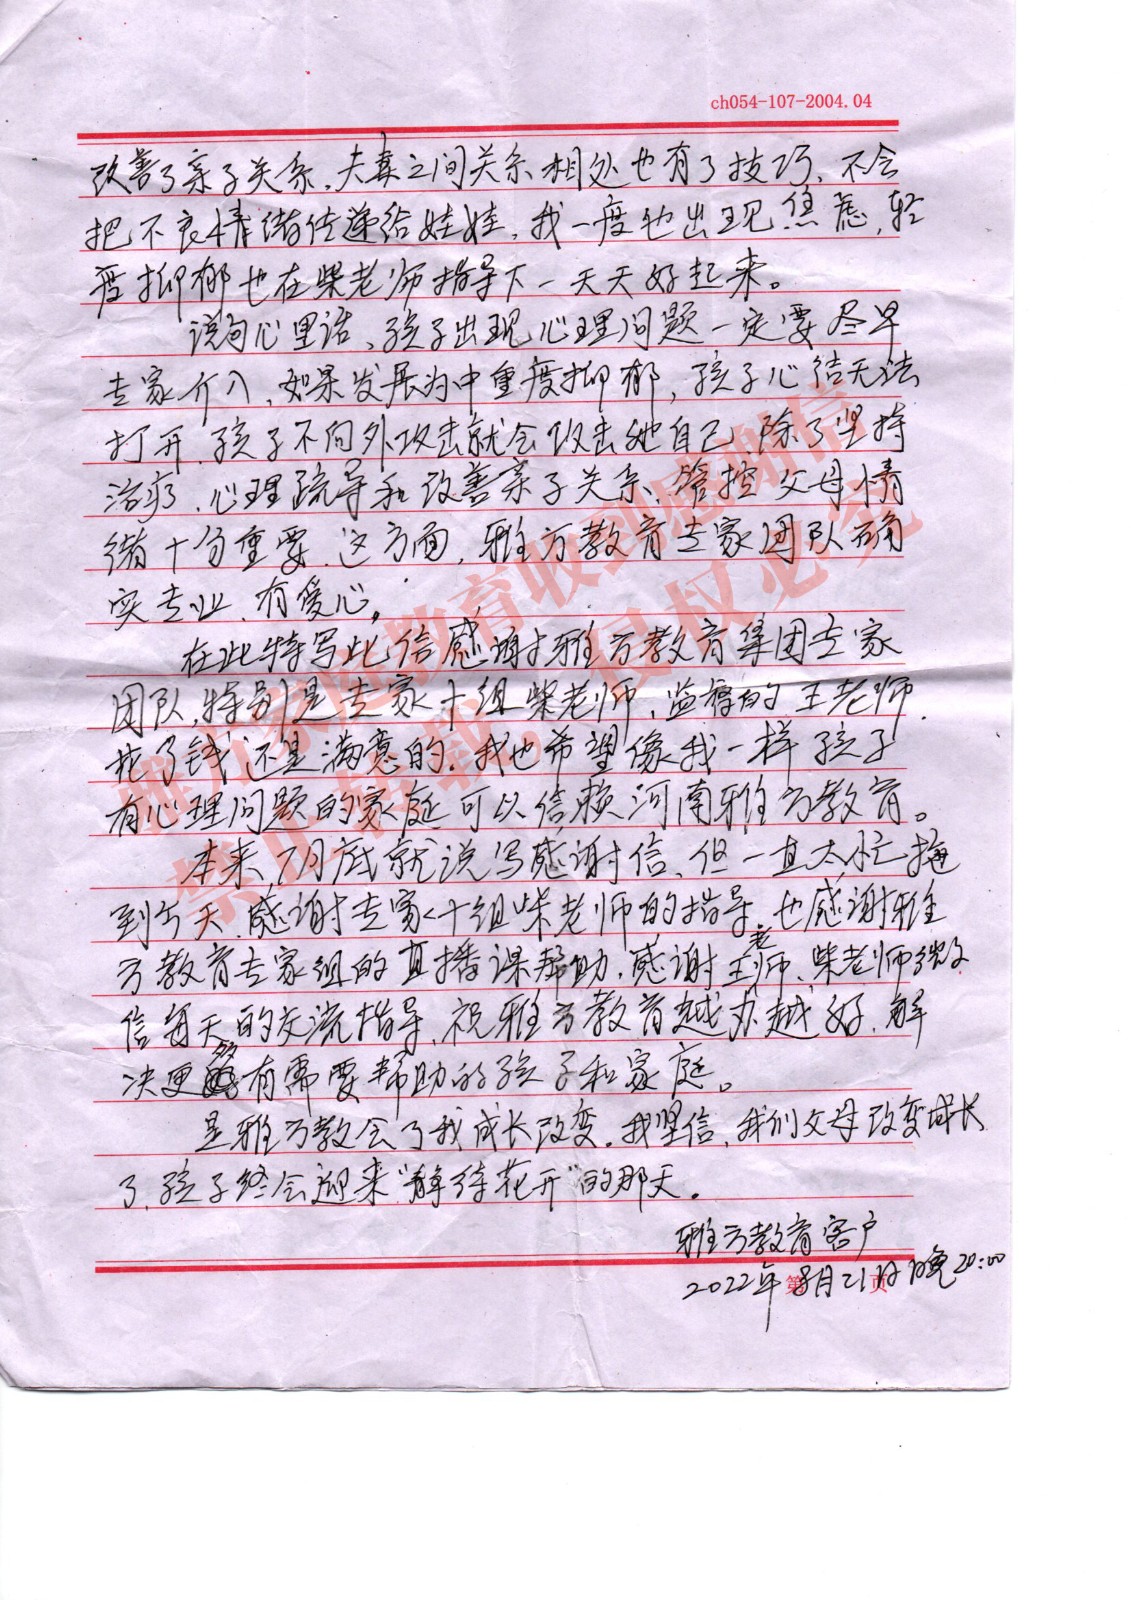 ch054-107-2004.04
改善了亲子关系,夫妻之间关系相处也有了技巧、不会
把不良情绪传递给娃娃,我一度也出现焦虑,轻
度抑郁也在柴老师指导下一天天好起来。
说句心里话、孩子出现心理问题一定要尽早
专家介入,如果发展为中重度抑郁,孩子心结无法
打开、孩子不向外攻击就会攻击她自己、除了坚持
治疗、心理疏导和改善亲子关系、管控父母情
绪十分重要、这方面,雅方教育专家团队确
实专业、有爱心。
在此特写此信感谢雅方教育集团专家
团队,特别是专家十组柴老师、监督的王老师、
花了钱还是满意的、我也希望像我一样孩子
有心理问题的家庭可以信赖河南雅方教育。
本来7月底就说写感谢信、但一直太忙拖
到今天、感谢专家十组柴老师的指导、也感谢雅
方教育专家组的直播课帮助、感谢王老师、柴老师微
信每天的交流指导、祝雅方教育越办越好、解
决更多有需要帮助的孩子和家庭。
是雅方教会了我成长改变、我坚信、我们父母改变成长
了、孩子终会迎来“静待花开”的那天。
雅方教育客户
2022年8月21日晚20:00
第 页
雅方家庭教育收到感谢信
禁止转载 侵权必究